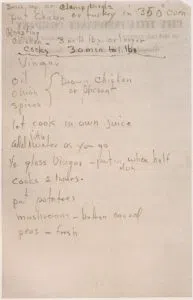 put Chicken or turkey in 350° oven
Roasting
Chicken - 3 or 4 lbs or larger
Cocks 30 min to 1 lb
Vinegar
oil
onion
spices
Brown Chicken
or pheasant
let cook in own juice
add water as you go
1/2 glass Vinegar - put in when half
done
cooks 2 hours.
put potatoes
mushrooms - button canned
peas - fresh